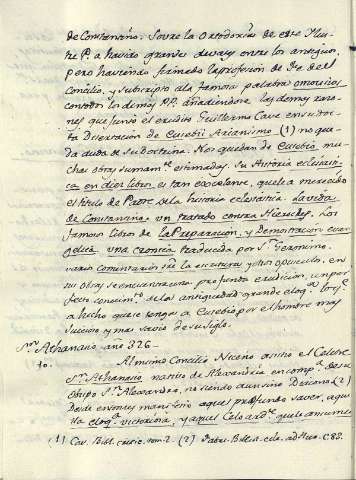 de Constantino. Sovre la Ortodoxia de este Ilus-
tre P.e a havido grandes devates entre los antiguos,
pero haviendo firmado la profesion de Fe del
Concilio, y subscripto a la famosa palabra omousios
con todos los demas PP. añadiendose las demas razo-
nes que juntó el erudito Guillermo Cave en su doc-
ta Disertacion de Eusebii Arianismo (1) no que-
da duda de su doctrina. Nos quedan de Eusebio mu-
chas obras sumam.te estimadas. Su Historia eclesiasti-
ca en diez libros es tan excelente, que le a merecido
el titulo de Padre de la historia eclesiastica. La vida
de Constantino un tratado contra Hierocles. Los
famosos libros de la Preparación, y Demonstracion evan-
gelica una cronica traducida por S.n Geronimo.
varios comentarios sre la escritura y otros opusculos. en
sus obras se encuentra una profunda erudicion, un per-
fecto conocim.to de la antiguedad grande eloq.a lo q.e
a hecho que se tenga a Eusebio por el hombre mas
y mas savio de su siglo.
S.n Athanasio año 326
to. Al mismo Concilio Niceno asistio el Celebre
S.n Athanasio natural de Alexandria en comp.a de su
obispo S.n Alexandro, no siendo aun sino Diacono (2)
Desde entonces manifestó aquel profundo saver, aque-
lla eloq.a victoriosa, y aquel Celo ard.te que le
(1) Cav. Bibl. tom. 2. (2) Fabri. Bibliot. ecle. C. 88.